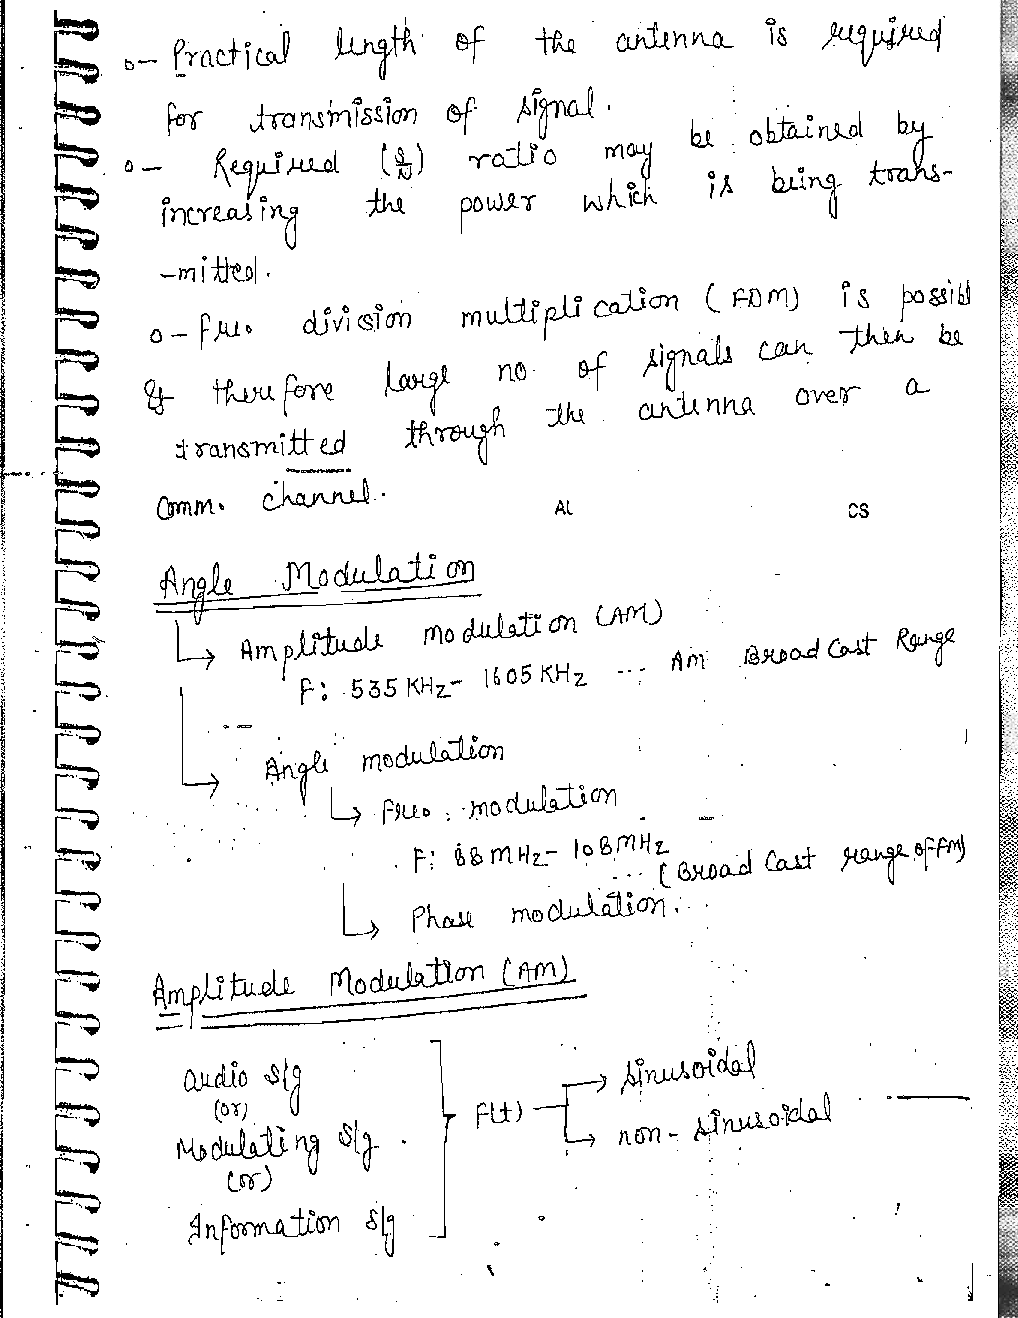 o- Practical length of the antenna is required
for transmission of signal.
o- Required (S/N) ratio may be obtained by
increasing the power which is being trans-
-mitted.
o- freo division multiplication (FDM) is possibl
& therefore large no. of signals can then be
transmitted through the antenna over a
Comm. channel.
AL CS
Angle Modulation
↳ Amplitude modulation (AM)
F: 535 KHz- 1605 KHz ... Am Broad Cast Range
↳ Angle modulation
↳ freo. modulation
F: 88 MHz- 108 MHz
... (Broad Cast range of FM)
↳ Phase modulation.
Amplitude Modulation (AM)
audio s/g
(or)
Modulating s/g
(or)
Information s/g
F(t)
→ sinusoidal
→ non-sinusoidal